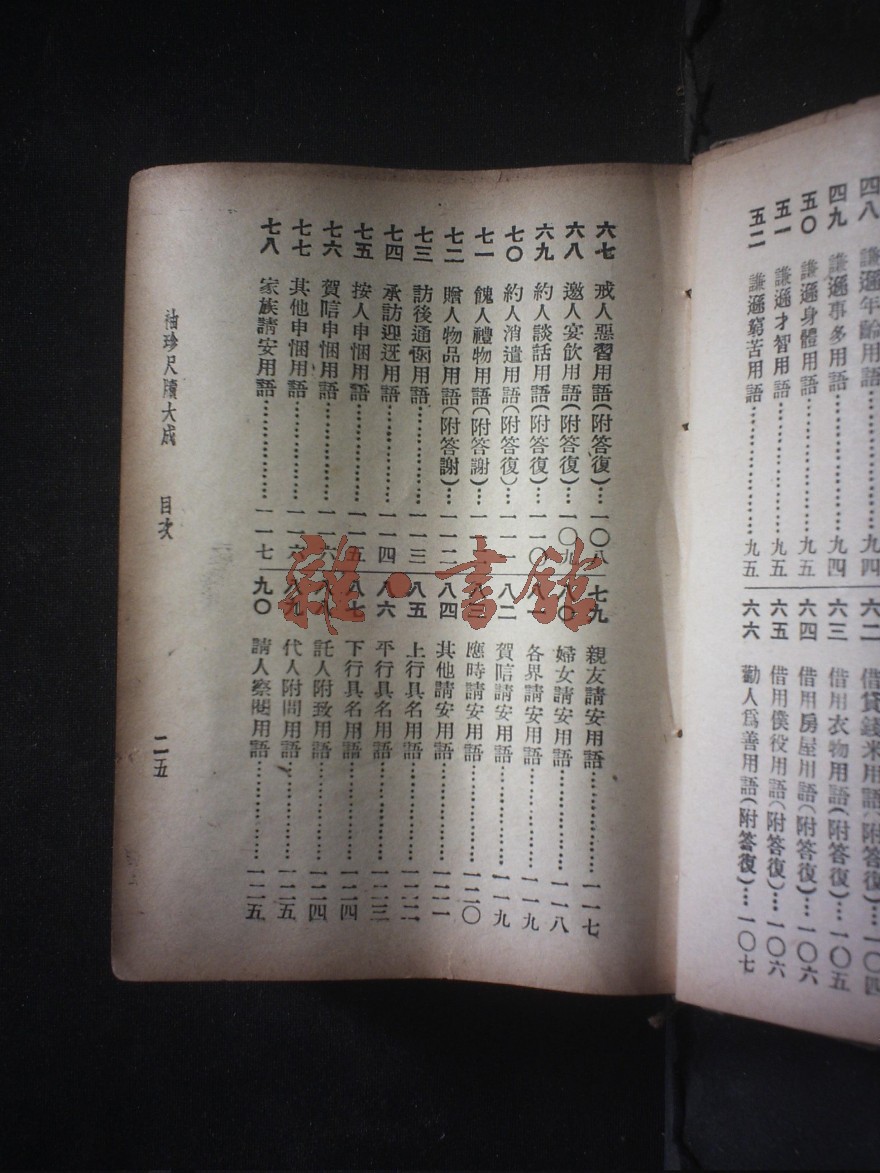 四八 謙遜年齡用語……九四
四九 謙遜事多用語……九四
五〇 謙遜身體用語……九五
五一 謙遜才智用語……九五
五二 謙遜窮苦用語……九五
六二 借貸錢米用語(附答復)…一〇四
六三 借用衣物用語(附答復)…一〇五
六四 借用房屋用語(附答復)…一〇六
六五 借用僕役用語(附答復)…一〇六
六六 勸人爲善用語(附答復)…一〇七
六七 戒人惡習用語(附答復)…一〇八
六八 邀人宴飲用語(附答復)…一〇九
六九 約人談話用語(附答復)…一一〇
七〇 約人消遣用語(附答復)…一一一
七一 餽人禮物用語(附答謝)…
七二 贈人物品用語(附答謝)…一一二
七三 訪後通候用語……一一三
七四 承訪迎迓用語……一一四
七五 按人申悃用語……一一五
七六 賀唁申悃用語……一一六
七七 其他申悃用語……一一六
七八 家族請安用語……一一七
七九 親友請安用語……一一七
八〇 婦女請安用語……一一八
八一 各界請安用語……一一九
八二 賀唁請安用語……一一九
八三 應時請安用語……一二〇
八四 其他請安用語……一二一
八五 上行具名用語……一二二
八六 平行具名用語……一二三
八七 下行具名用語……一二四
八八 託人附致用語……一二四
八九 代人附問用語……一二五
九〇 請人察閱用語……一二五
袖珍尺牘大成 目次 二五
雜·書館